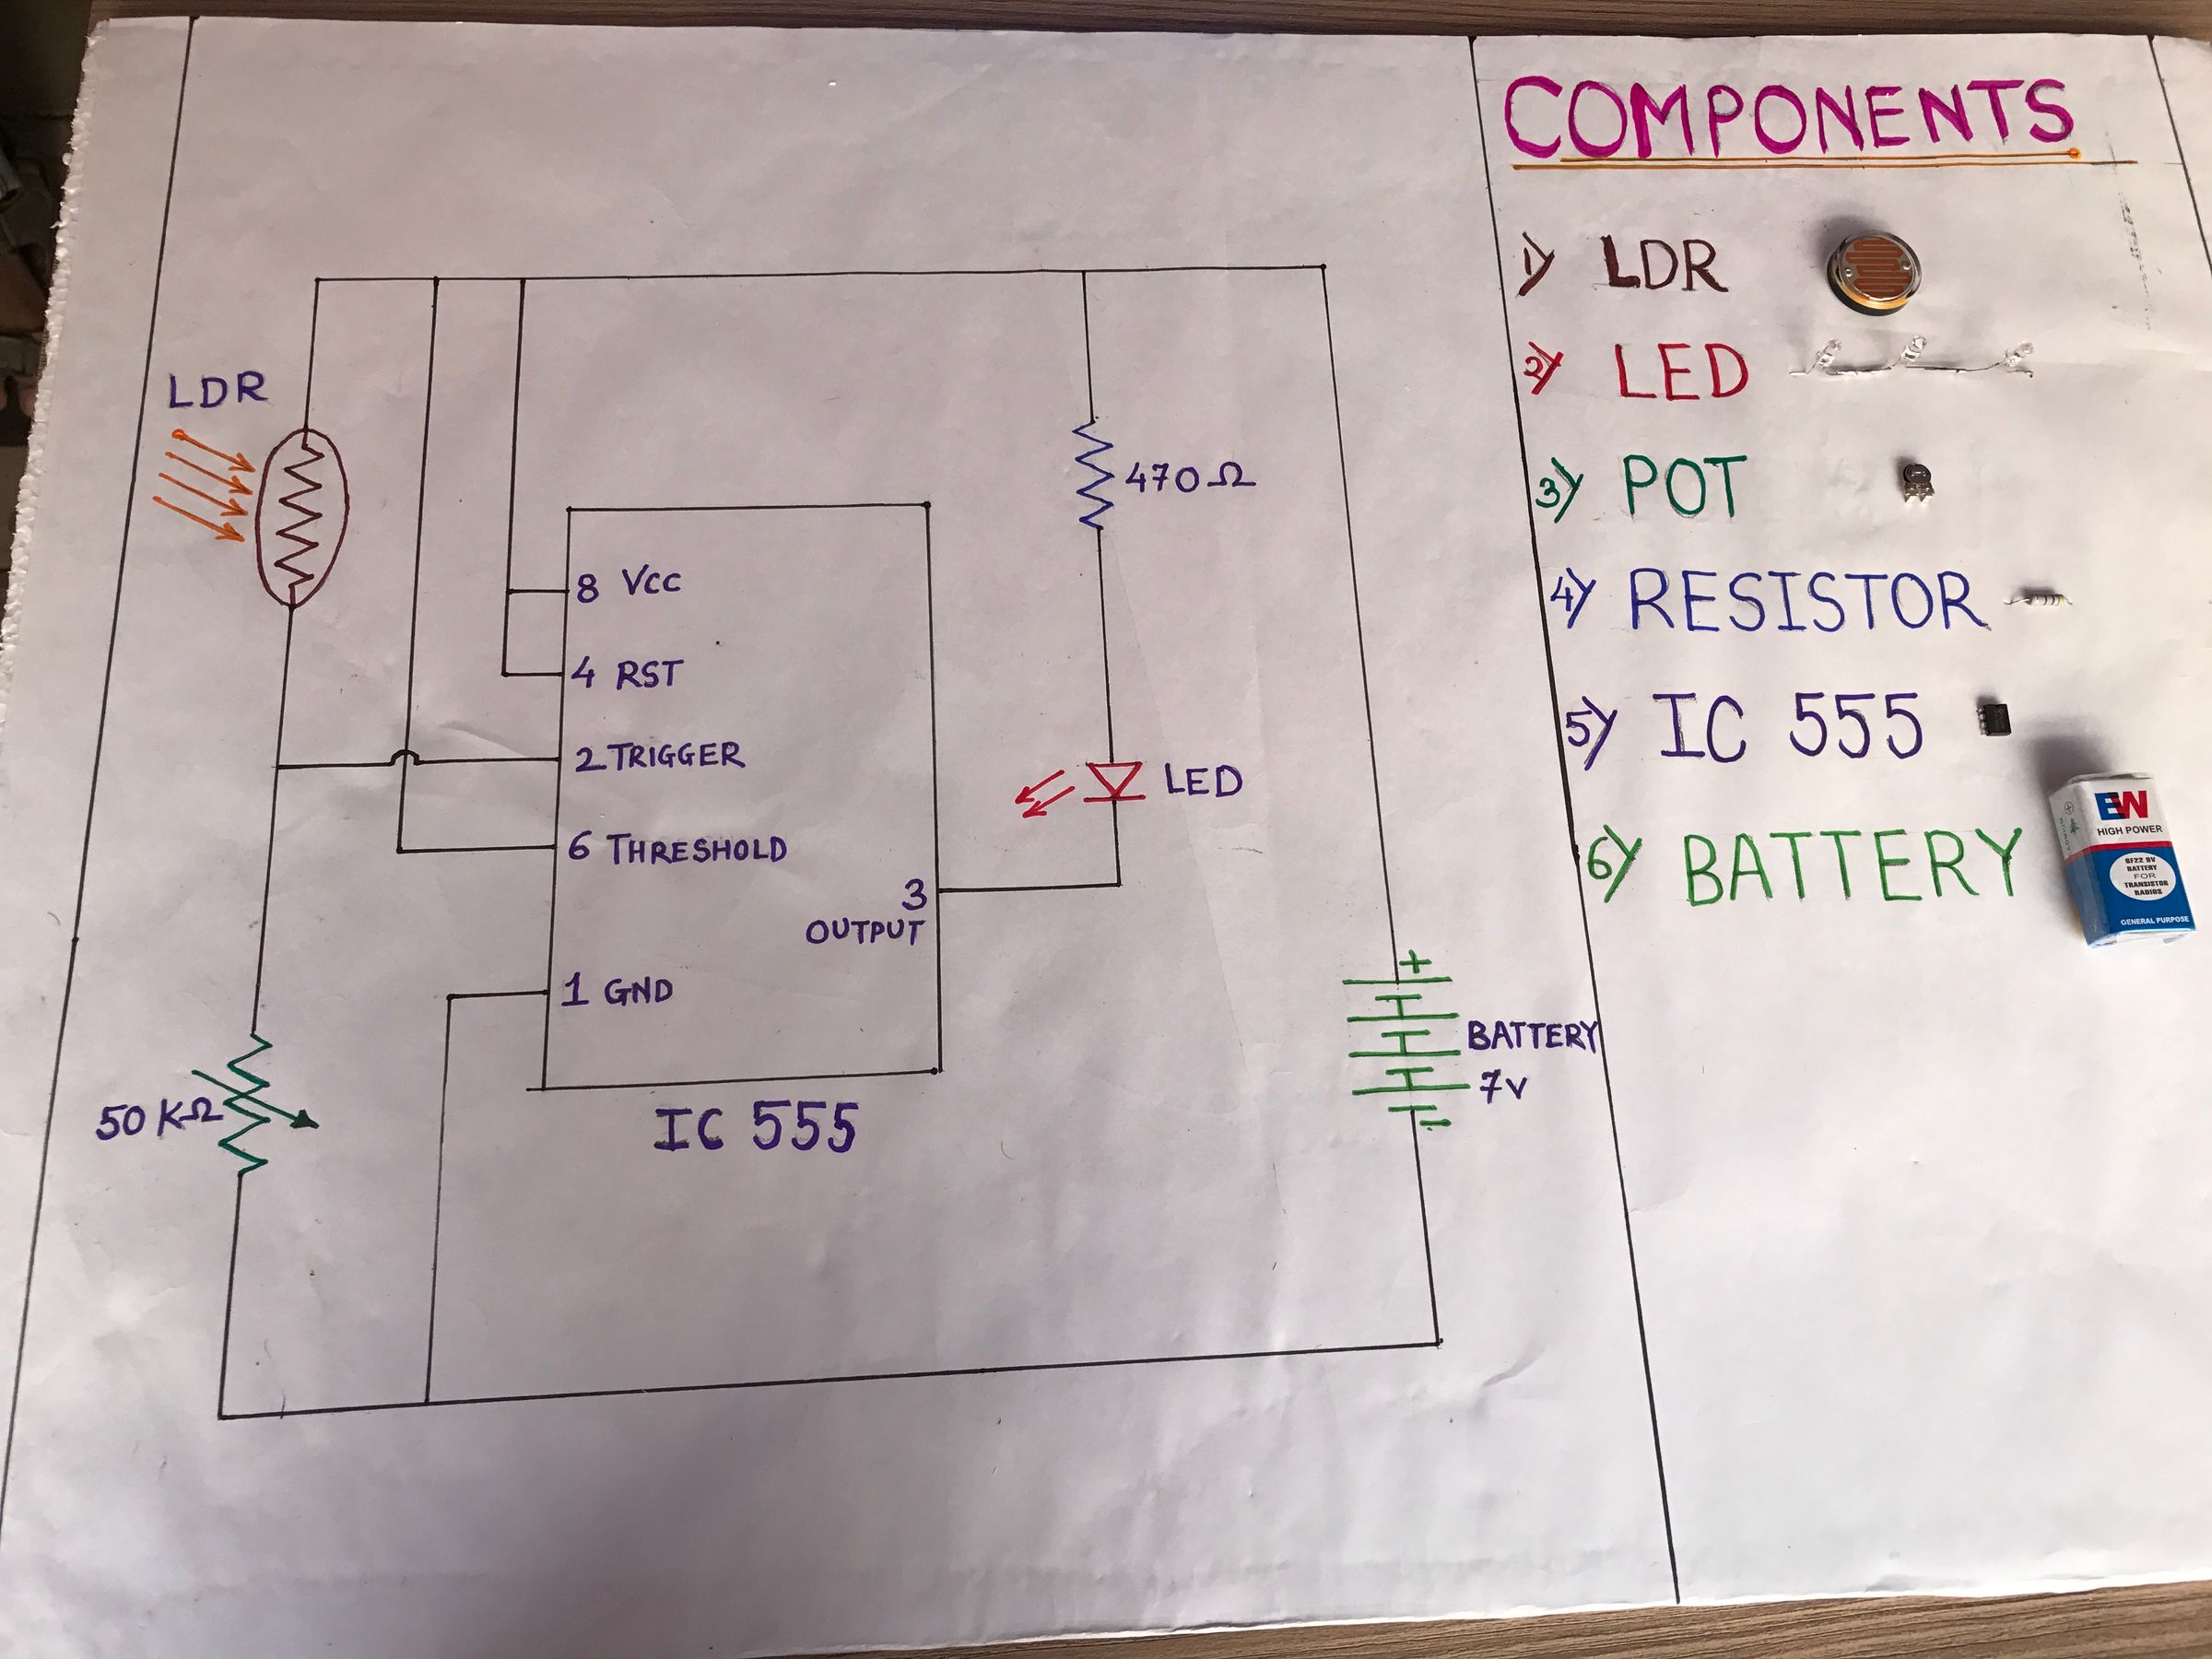 COMPONENTS
1) LDR
2) LED
3) POT
4) RESISTOR
5) IC 555
6) BATTERY
EW
HIGH POWER
6F22 9V
BATTERY
FOR
TRANSISTOR
RADIOS
GENERAL PURPOSE
LDR
470Ω
8 VCC
4 RST
2 TRIGGER
6 THRESHOLD
3
OUTPUT
1 GND
LED
+
BATTERY
7V
50 KΩ
IC 555